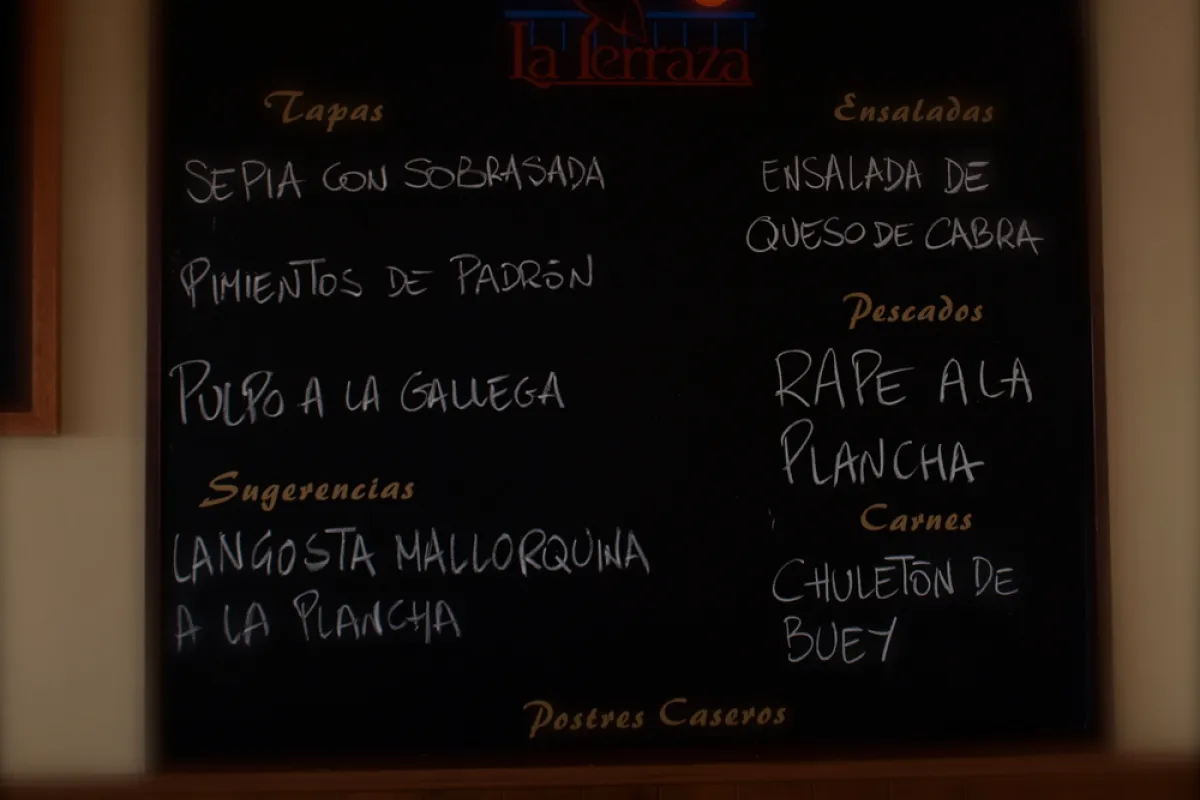 La Terraza
Tapas
SEPIA CON SOBRASADA
PIMIENTOS DE PADRÓN
PULPO A LA GALLEGA
Sugerencias
LANGOSTA MALLORQUINA
A LA PLANCHA
Ensaladas
ENSALADA DE
QUESO DE CABRA
Pescados
RAPE A LA
PLANCHA
Carnes
CHULETÓN DE
BUEY
Postres Caseros